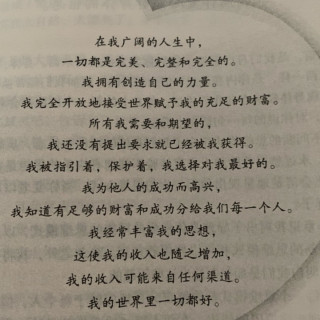 在我广阔的人生中，
一切都是完美、完整和完全的。
我拥有创造自己的力量。
我完全开放地接受世界赋予我的充足的财富。
所有我需要和期望的，
我还没有提出要求就已经被我获得。
我被指引着，保护着，我选择对我最好的。
我为他人的成功而高兴，
我知道有足够的财富和成功分给我们每一个人。
我经常丰富我的思想，
这使我的收入也随之增加，
我的收入可能来自任何渠道。
我的世界里一切都好。